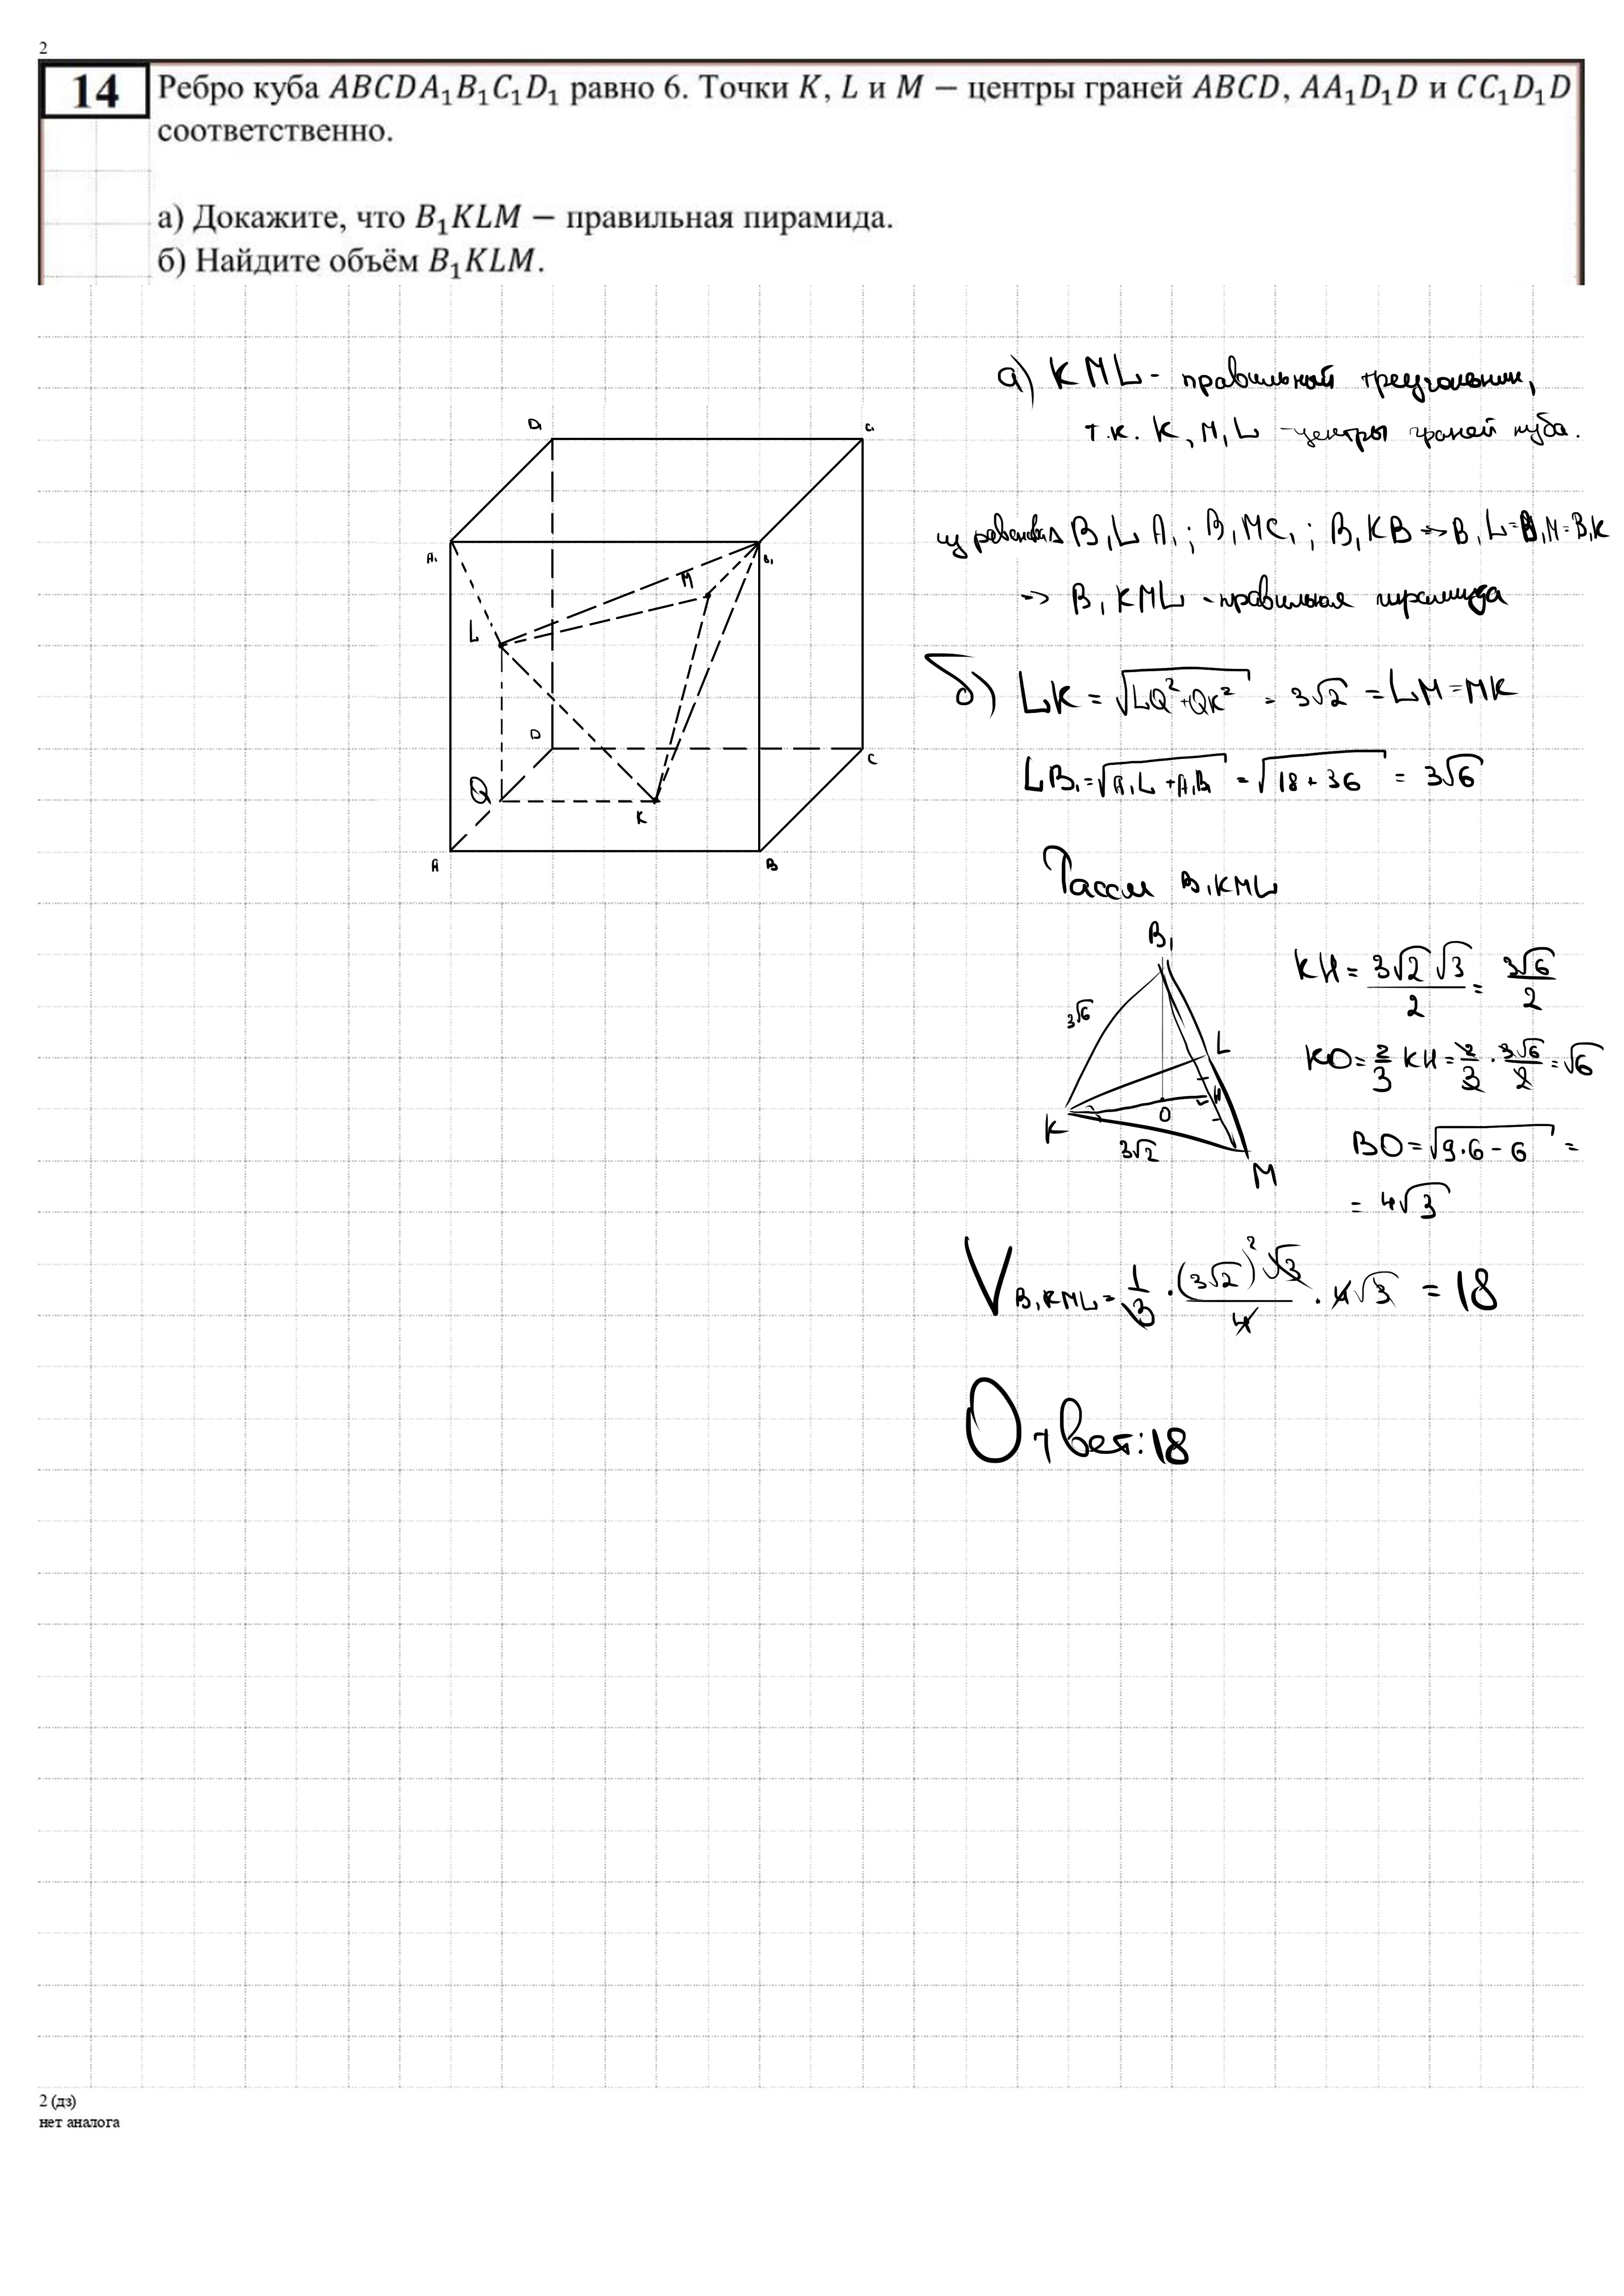 2
14
Ребро куба ABCDA₁B₁C₁D₁ равно 6. Точки K, L и M − центры граней ABCD, AA₁D₁D и CC₁D₁D
соответственно.
а) Докажите, что B₁KLM − правильная пирамида.
б) Найдите объём B₁KLM.
а) KML - правильный треугольник,
т.к. K, M, L - центры граней куба.
D₁
C₁
A₁
B₁
M
L
D
C
Q
K
A
B
из равенства B₁LA₁; B₁MC₁; B₁KB => B₁L=B₁M=B₁K
=> B₁KML - правильная пирамида
б) LK = √(LQ²+QK²) = 3√2 = LM = MK
LB₁ = √(A₁L + A₁B₁) = √(18 + 36) = 3√6
Рассм B₁KML
B₁
3√6
L
H
K
O
3√2
M
KH = 3√2 √3 / 2 = 3√6 / 2
KO = 2/3 KH = 2/3 · 3√6/2 = √6
BO = √(9·6 - 6) =
= 4√3
V B₁KML = 1/3 · (3√2)²√3 / 4 · 4√3 = 18
Ответ: 18
2 (дз)
нет аналога